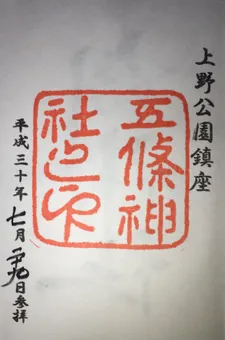 上野公園鎮座
五條神
社之印
平成三十年七月二十九日参拝